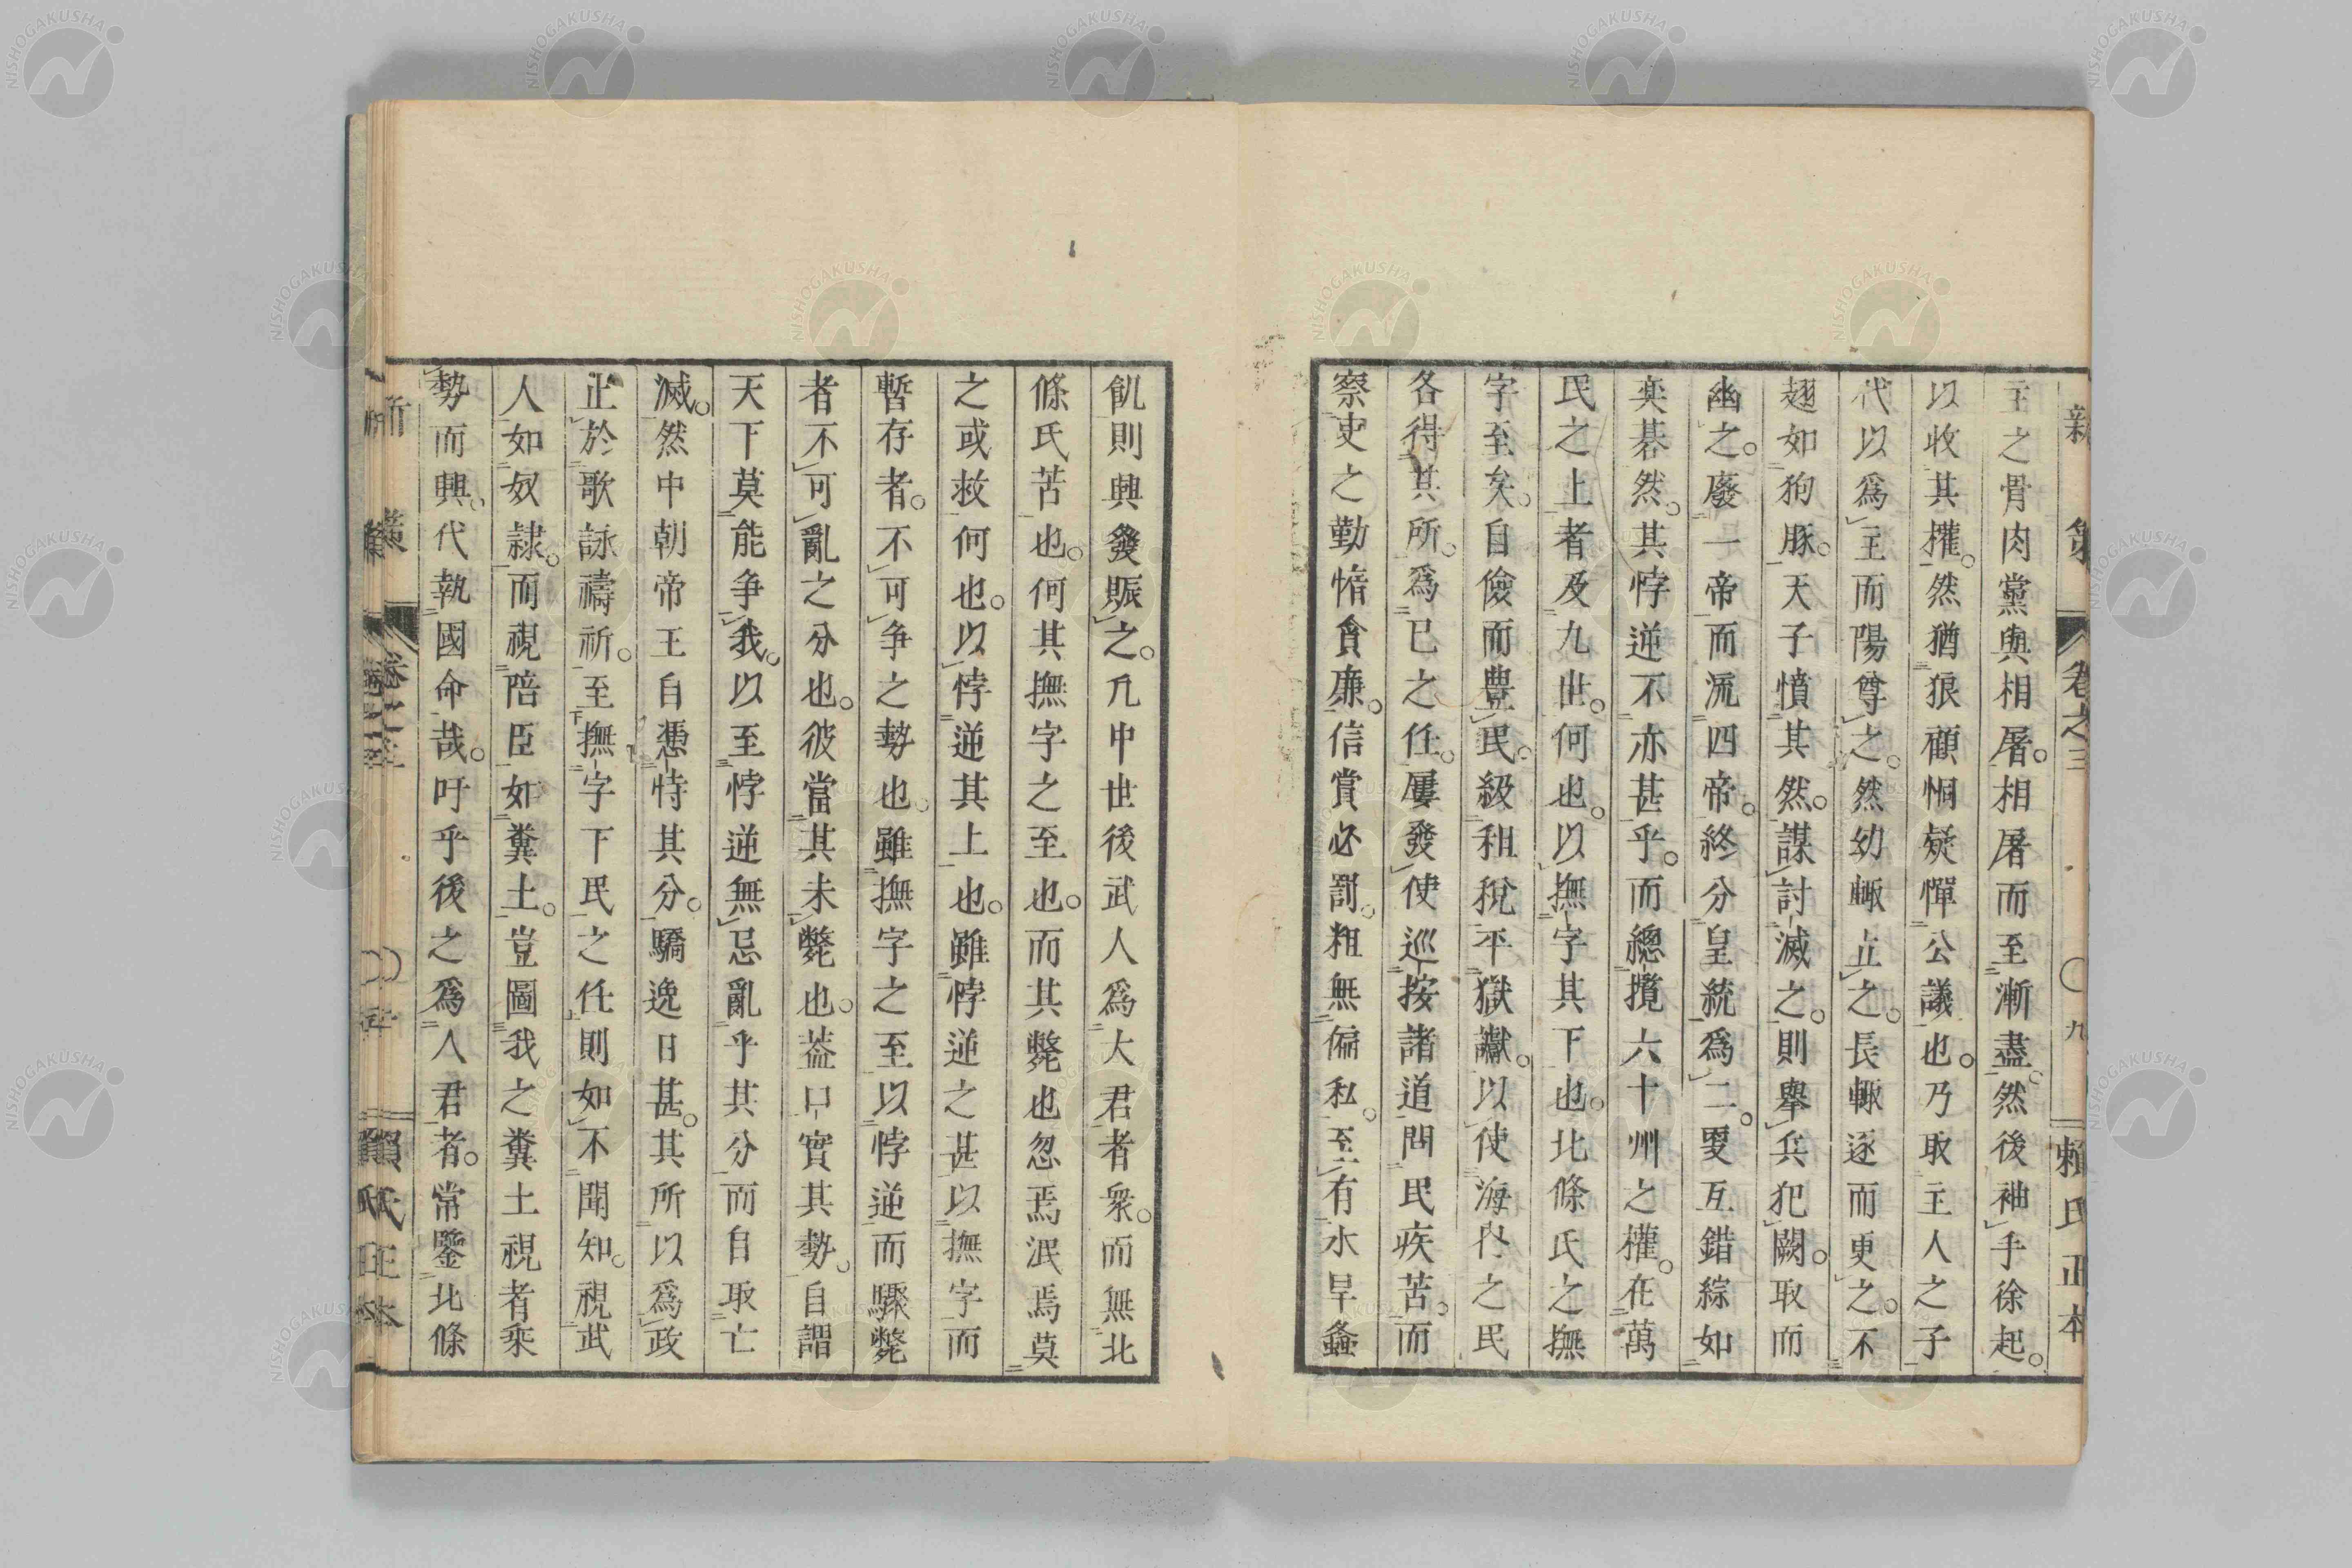 主之骨肉黨與相屠。相屠而至漸盡。然後袖手徐起。
以收其權。然猶狼顧恫疑憚公議也。乃取主人之子
代以爲主而陽尊之。然幼輙立之。長輙逐而更之。不
翅如狗豚。天子憤其然。謀討滅之。則舉兵犯闕。取而
幽之。廢一帝而流四帝。終分皇統爲二。更互錯綜如
奕碁然。其悖逆不亦甚乎。而總攬六十州之權。在萬
民之上者及九世。何也。以撫字其下也。北條氏之撫
字至矣。自儉而豊民。級租稅平獄讞。以使海內之民
各得其所。爲已之任。屢發使巡按諸道問民疾苦。而
察吏之勤惰貪廉。信賞必罰。粗無偏私。至有水旱螽
飢則興發賑之。凡中世後武人爲大君者衆。而無北
條氏苦也。何其撫字之至也。而其斃也忽焉泯焉莫
之或救何也。以悖逆其上也。雖悖逆之甚以撫字而
暫存者。不可争之勢也。雖撫字之至以悖逆而驟斃
者不可亂之分也。彼當其未斃也。葢口實其勢。自謂
天下莫能争我。以至悖逆無忌亂乎其分而自取亡
滅。然中朝帝王自憑恃其分。驕逸日甚。其所以爲政
止於歌詠禱祈。至撫字下民之任則如不聞知。視武
人如奴隷。而視陪臣如糞土。豈圖我之糞土視者乘
勢而興。代執國命哉。吁乎後之爲人君者。常鑒北條
新策 卷之三 九 賴氏正本
賴氏正本
NISHOGAKUSHA